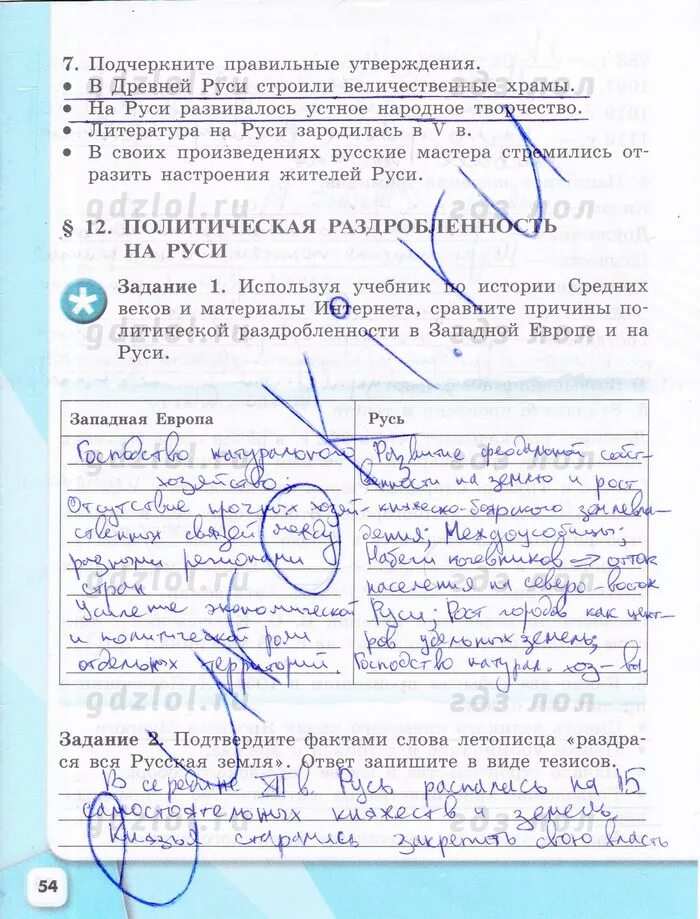 7. Подчеркните правильные утверждения.
• В Древней Руси строили величественные храмы.
• На Руси развивалось устное народное творчество.
• Литература на Руси зародилась в V в.
• В своих произведениях русские мастера стремились от-
разить настроения жителей Руси.
gdzlol.ru гдз лол
§ 12. ПОЛИТИЧЕСКАЯ РАЗДРОБЛЕННОСТЬ
НА РУСИ
Задание 1. Используя учебник по истории Средних
веков и материалы Интернета, сравните причины по-
литической раздробленности в Западной Европе и на
Руси.
Западная Европа
Господство натурального
хозяйство;
Отсутствие прочных хозяй-
ственных связей между
разными регионами
стран
Усиление экономической
и политической роли
отдельных территорий.
Русь
Развитие феодальной собст-
венности на землю и рост
княжеско-боярского землевла-
дения; Междоусобицы;
Набеги кочевников => отток
населения на северо-восток
Руси; Рост городов как цент-
ров удельных земель;
Господство натурал. хоз-ва.
Задание 2. Подтвердите фактами слова летописца «раздра-
ся вся Русская земля». Ответ запишите в виде тезисов.
В середине XII в. Русь распалась на 15
самостоятельных княжеств и земель
Князья старались закрепить свою власть
54